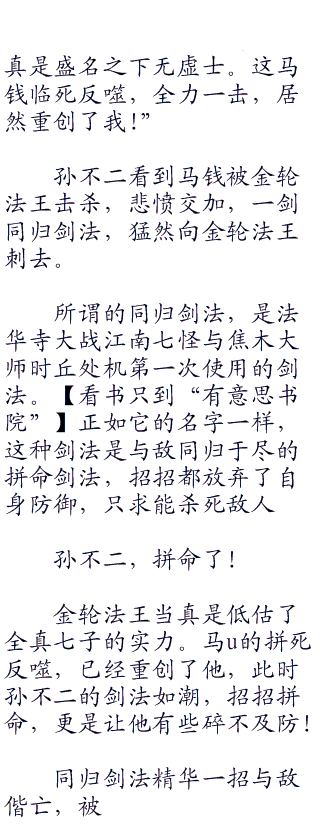 真是盛名之下无虚士。这马
钱临死反噬，全力一击，居
然重创了我！”
孙不二看到马钱被金轮
法王击杀，悲愤交加，一剑
同归剑法，猛然向金轮法王
刺去。
所谓的同归剑法，是法
华寺大战江南七怪与焦木大
师时丘处机第一次使用的剑
法。【看书只到“有意思书
院”】正如它的名字一样，
这种剑法是与敌同归于尽的
拼命剑法，招招都放弃了自
身防御，只求能杀死敌人
孙不二，拼命了！
金轮法王当真是低估了
全真七子的实力。马u的拼死
反噬，已经重创了他，此时
孙不二的剑法如潮，招招拼
命，更是让他有些碎不及防！
同归剑法精华一招与敌
偕亡，被